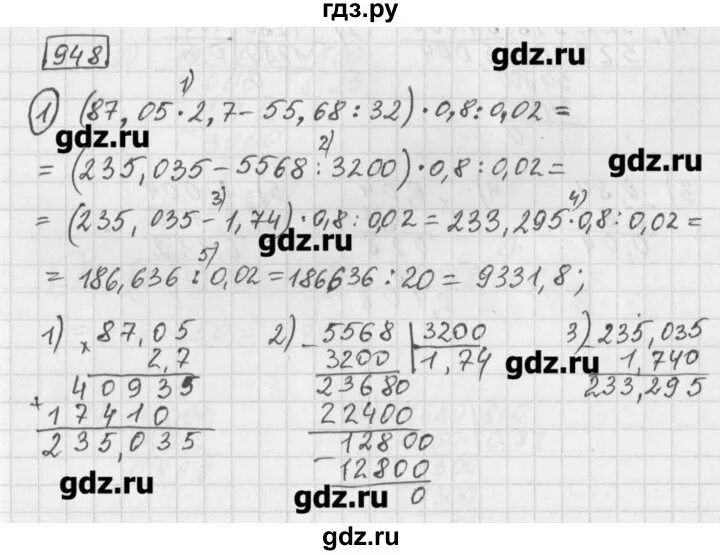 гдз.ру
948
gdz.ru
1)
1) (87,05·2,7-55,68:32)·0,8:0,02=
gdz.ru
2)
=(235,035-5568:3200)·0,8:0,02=
gdz.ru
3) 4)
=(235,035-1,74)·0,8:0,02=233,295·0,8:0,02=
gdz.ru
5)
=186,636:0,02=186636:20=9331,8;
1) × 87,05 2) - 5568 3200 3) 235,035
2,7 3200 1,74 gdz.ru 1,740
40935 23680 233,295
+ 17410 22400
235,035 12800
- 12800
gdz.ru gdz.ru 0
gdz.ru